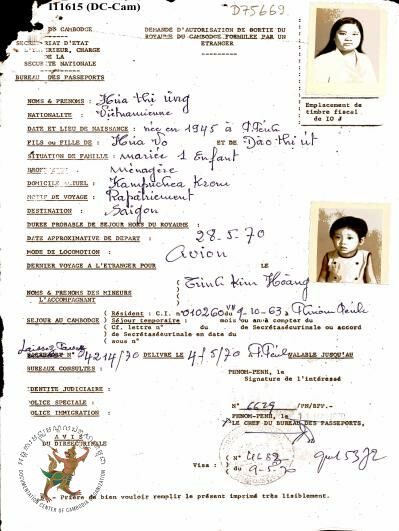 I1615 (DC-Cam)
D75669
DU CAMBODGE
DEMANDE D'AUTORISATION DE SORTIE DU
ROYAUME DU CAMBODGE FORMULEE PAR UN
ETRANGER
SECRETARIAT D'ETAT
L'INTERIEUR, CHARGE
DE LA
SECURITE NATIONALE
BUREAU DES PASSEPORTS
Emplacement de
timbre fiscal
de 10 $
NOMS & PRENOMS : Hua thi ưng
NATIONALITE : Vietnamienne
DATE ET LIEU DE NAISSANCE : née en 1945 à P.Penh
FILS ou FILLE DE : Hua Vo ET DE Dao thi ut
SITUATION DE FAMILLE : mariée 1 Enfant
ménagère
DOMICILE ACTUEL : Kampuchea Krom
MOTIF DE VOYAGE : Rapatriement
DESTINATION : Saigon
DUREE PROBABLE DE SEJOUR HORS DU ROYAUME :
DATE APPROXIMATIVE DE DEPART : 28-5-70
MODE DE LOCOMOTION : Avion
DERNIER VOYAGE A L'ETRANGER POUR LE
NOMS & PRENOMS DES MINEURS : Trinh Kim Hoang
L'ACCOMPAGNANT
Résident : C.I. n° 010260 du 9-10-63 à Phnom Penh
SEJOUR AU CAMBODGE Séjour temporaire : mois ou an à compter du
Cf. lettre n° du de Secrétaséurinale ou accord
de Secrétaséurinale en date du
sous n°
Laissez Passer N° 4214/70 DELIVRE LE 4/5/70 P.Penh VALABLE JUSQU'AU
BUREAUX CONSULTES : PHNOM-PENH, LE
Signature de l'intéressé
IDENTITE JUDICIAIRE :
POLICE SPECIALE : N° 6629 /PN/BPP.-
POLICE IMMIGRATION : PHNOM-PENH, le
LE CHEF DU BUREAU DES PASSEPORTS,
AVIS
DU DIRSECURINALE
Visa : N° 4682
du 9-5-70
DOCUMENTATION CENTER OF CAMBODIA
Prière de bien vouloir remplir le présent imprimé très lisiblement.